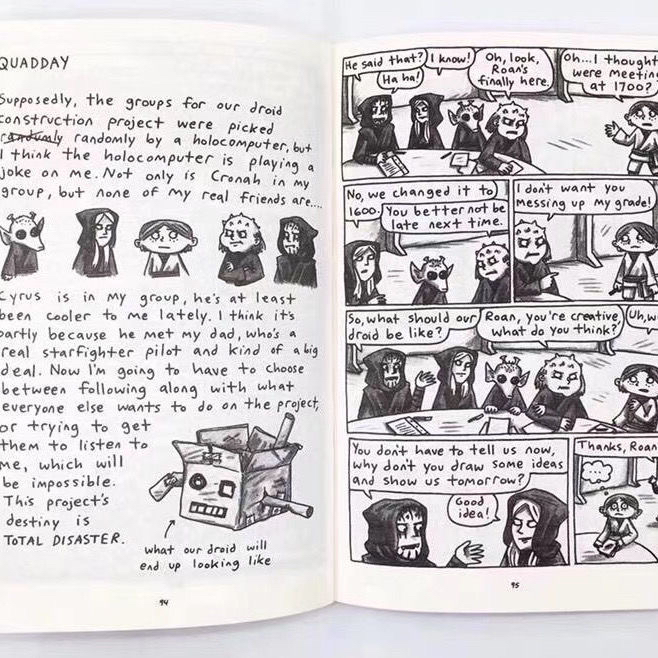 QUADDAY
Supposedly, the groups for our droid
construction project were picked
randumly randomly by a holocomputer, but
I think the holocomputer is playing a
joke on me. Not only is Cronah in my
group, but none of my real friends are....
Cyrus is in my group, he's at least
been cooler to me lately. I think it's
partly because he met my dad, who's a
real starfighter pilot and kind of a big
deal. Now I'm going to have to choose
between following along with what
everyone else wants to do on the project,
or trying to get
them to listen to
me, which will
be impossible.
This project's
destiny is
TOTAL DISASTER.
what our droid will
end up looking like
94
He said that?
Ha ha!
I know!
Oh, look,
Roan's
finally here.
Oh...I thought
were meeting
at 1700?
No, we changed it to
1600.
You better not be
late next time.
I don't want you
messing up my grade!
So, what should our
droid be like?
Roan, you're creative,
what do you think?
Uh,
You don't have to tell us now,
why don't you draw some ideas
and show us tomorrow?
Good
idea!
Thanks, Roan
95